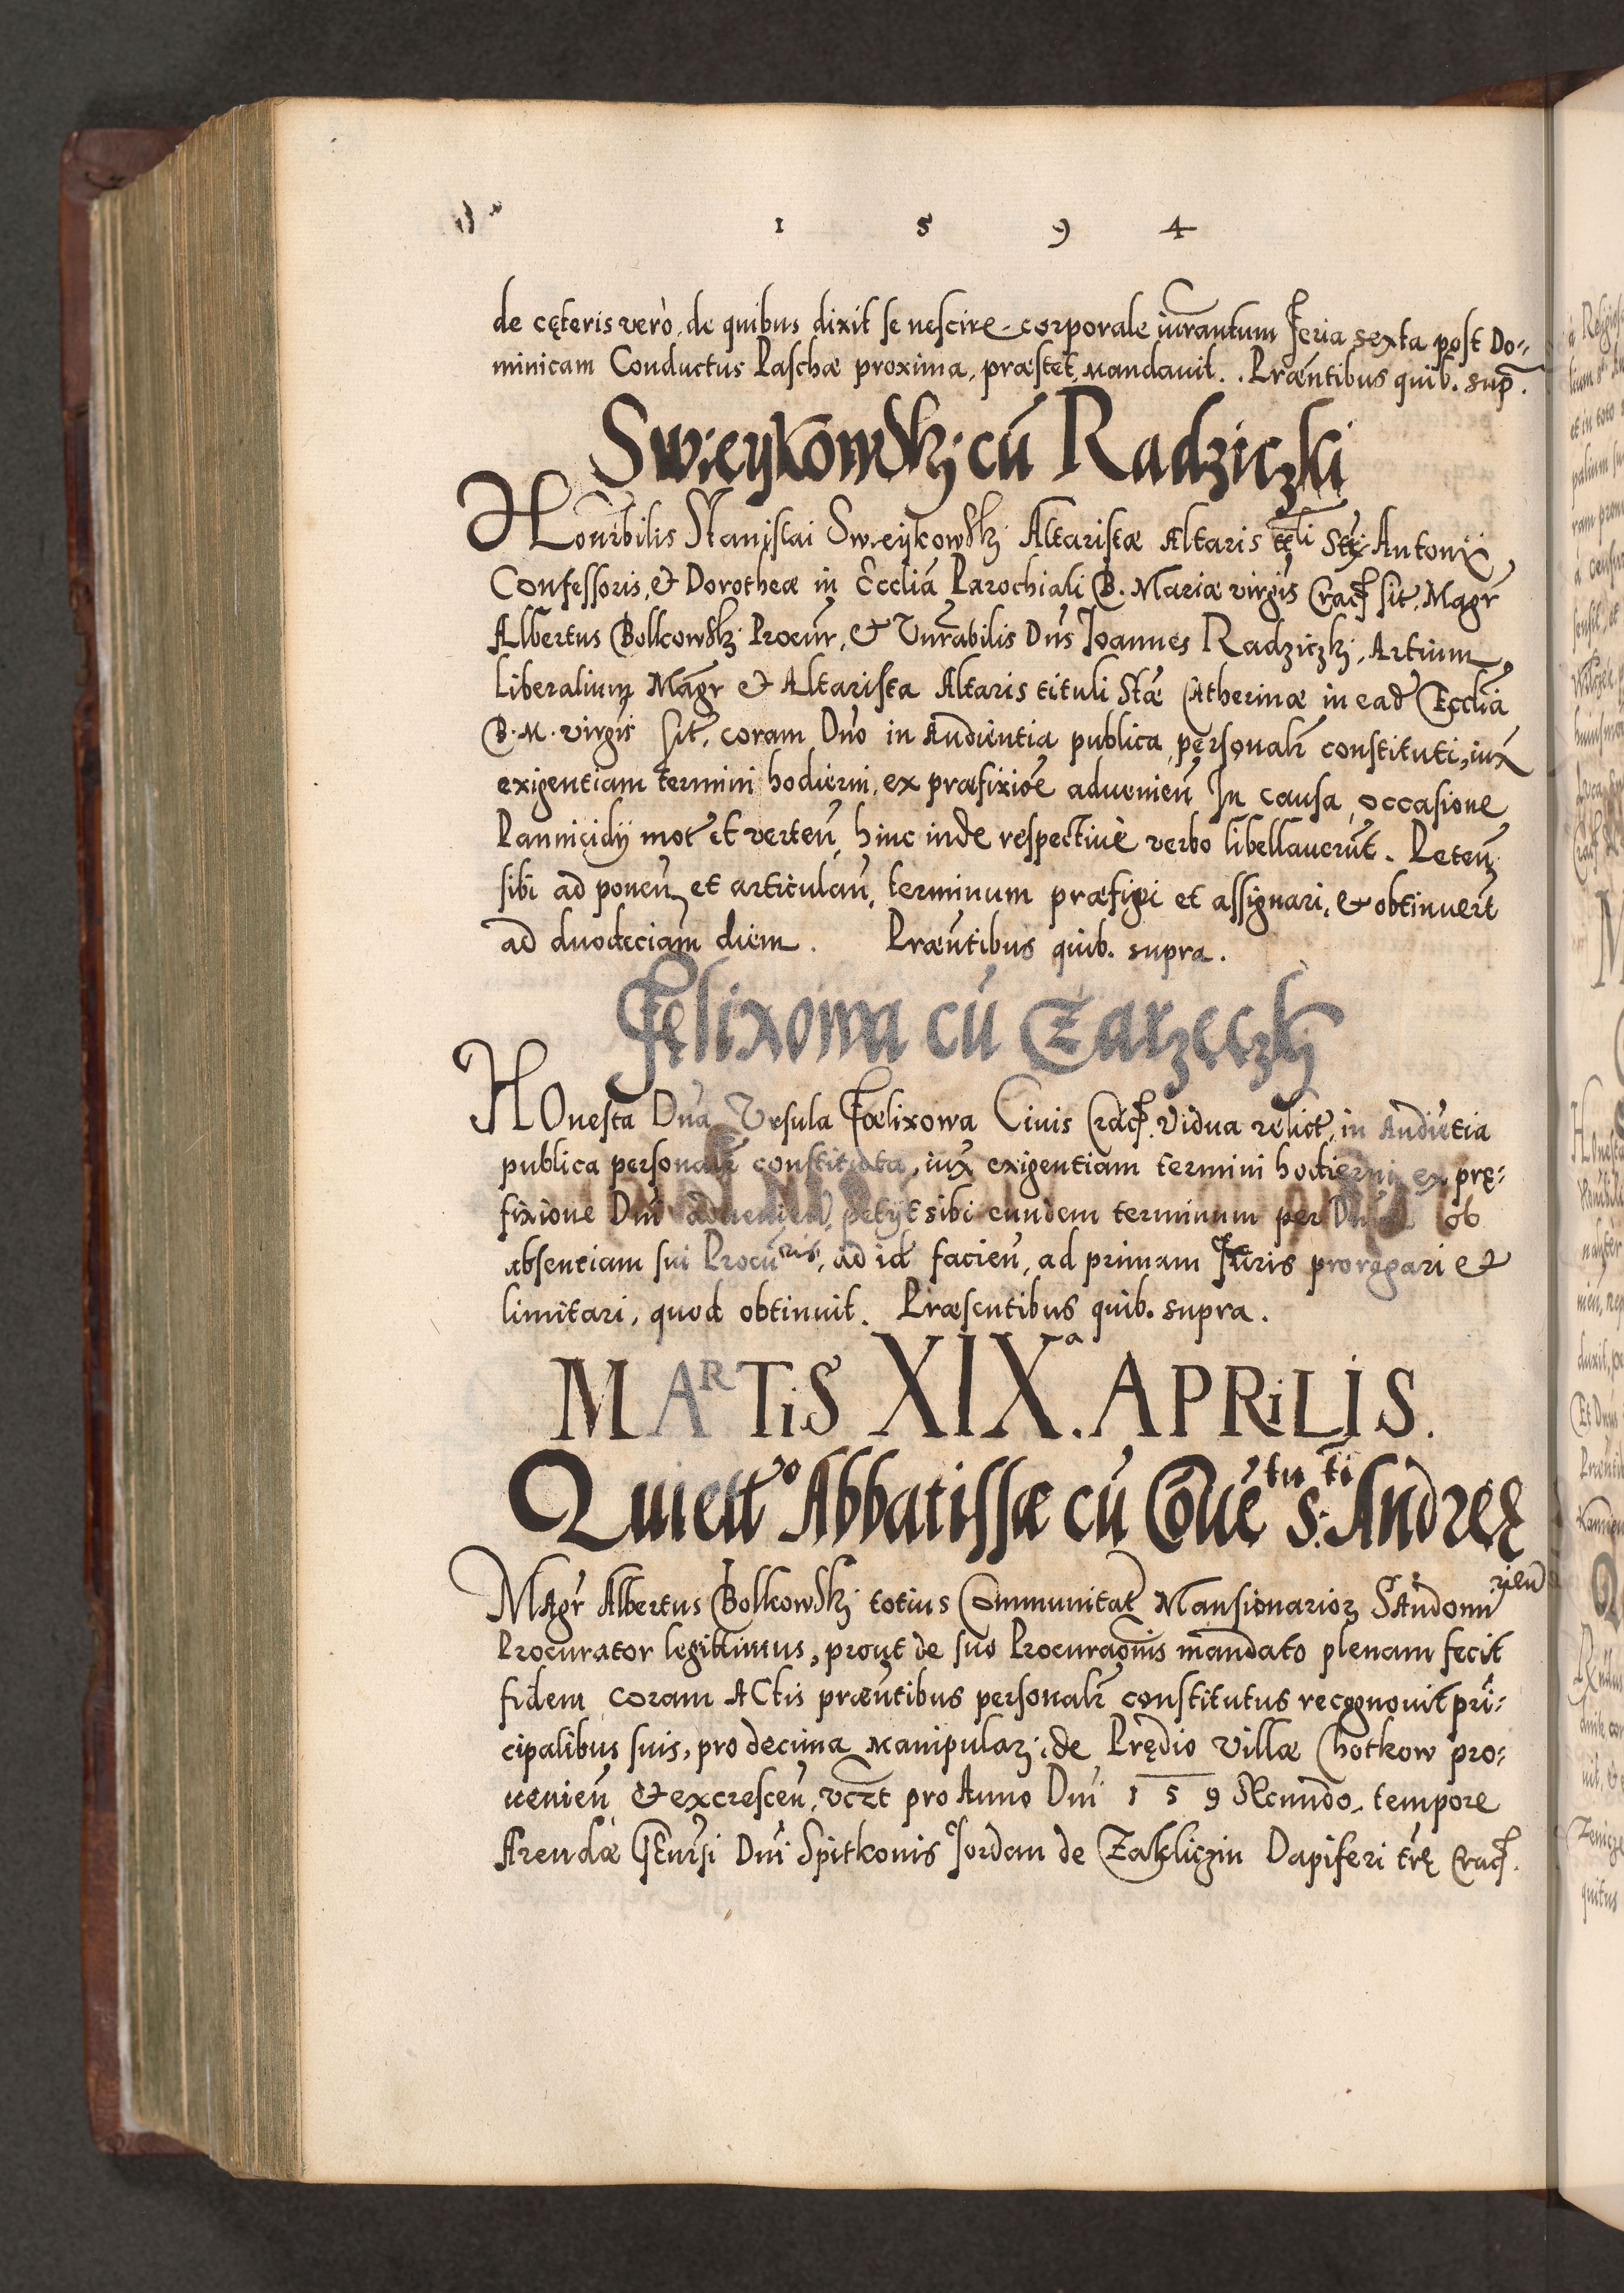 1 5 9 4
de cęteris verò, de quibus dixit se nescire corporale iurantum Feria sexta post Do-
minicam Conductus Paschæ proxima, præstet, mandavit. Præntibus quib. sup.
Swieykowsky cū Radziczki
Honrbilis Stanislai Swieykowsky Altaristæ Altaris ttli Sti Antonij
Confessoris, et Dorotheæ in Ecclia Parochiali B. Mariæ virgis Crac sit, Magr
Albertus Bolkowsky Procur, et Vnrabilis Dns Ioannes Radziczki, Artium
liberalium Magr et Altarista Altaris tituli Stæ Catherinæ in ead Ecclia
B. M. virgis sit, coram Dno in Audientia publica personalr constituti, iux
exigentiam termini hodierni, ex præfixiōe aduenien In causa occasione
Pannicidij mot et verten, hinc inde respectiuè verbo libellauerūt. Peten
sibi ad ponen et articulan, terminum præfigi et assignari, et obtinuert
ad duodeciam diem. Præntibus quib. supra.
Felixowa cū Zarzeczky
Honesta Dna Vrsula Foelixowa Ciuis Crac. vidua relict, in Audiētia
publica personalr constituta, iux exigentiam termini hodierni ex prę-
fixione Dni aduenien, petijt sibi eundem terminum per Dnum ob
absentiam sui Procuris, ad id facien, ad primam Iuris prorogari et
limitari, quod obtinuit. Præsentibus quib. supra.
MARTIS XIXa. APRILIS.
Quiettº Abbatissæ cū Cōuētu S.ti Andreę
Magr Albertus Bolkowsky totius Communitat Mansionarior Sandomirien
Procurator legittimus, prout de suo Procuraonis mandato plenam fecit
fidem coram Actis præntibus personalr constitutus recognouit pri-
cipalibus suis, pro decima manipulari de Prędio villæ Chotkow pro-
uenien et excrescen, vczt pro Anno Dni 1 5 9 Secundo, tempore
Arendæ Gnrsi Dni Spitkonis Jordan de Zakliczin Dapiferi trę Crac.